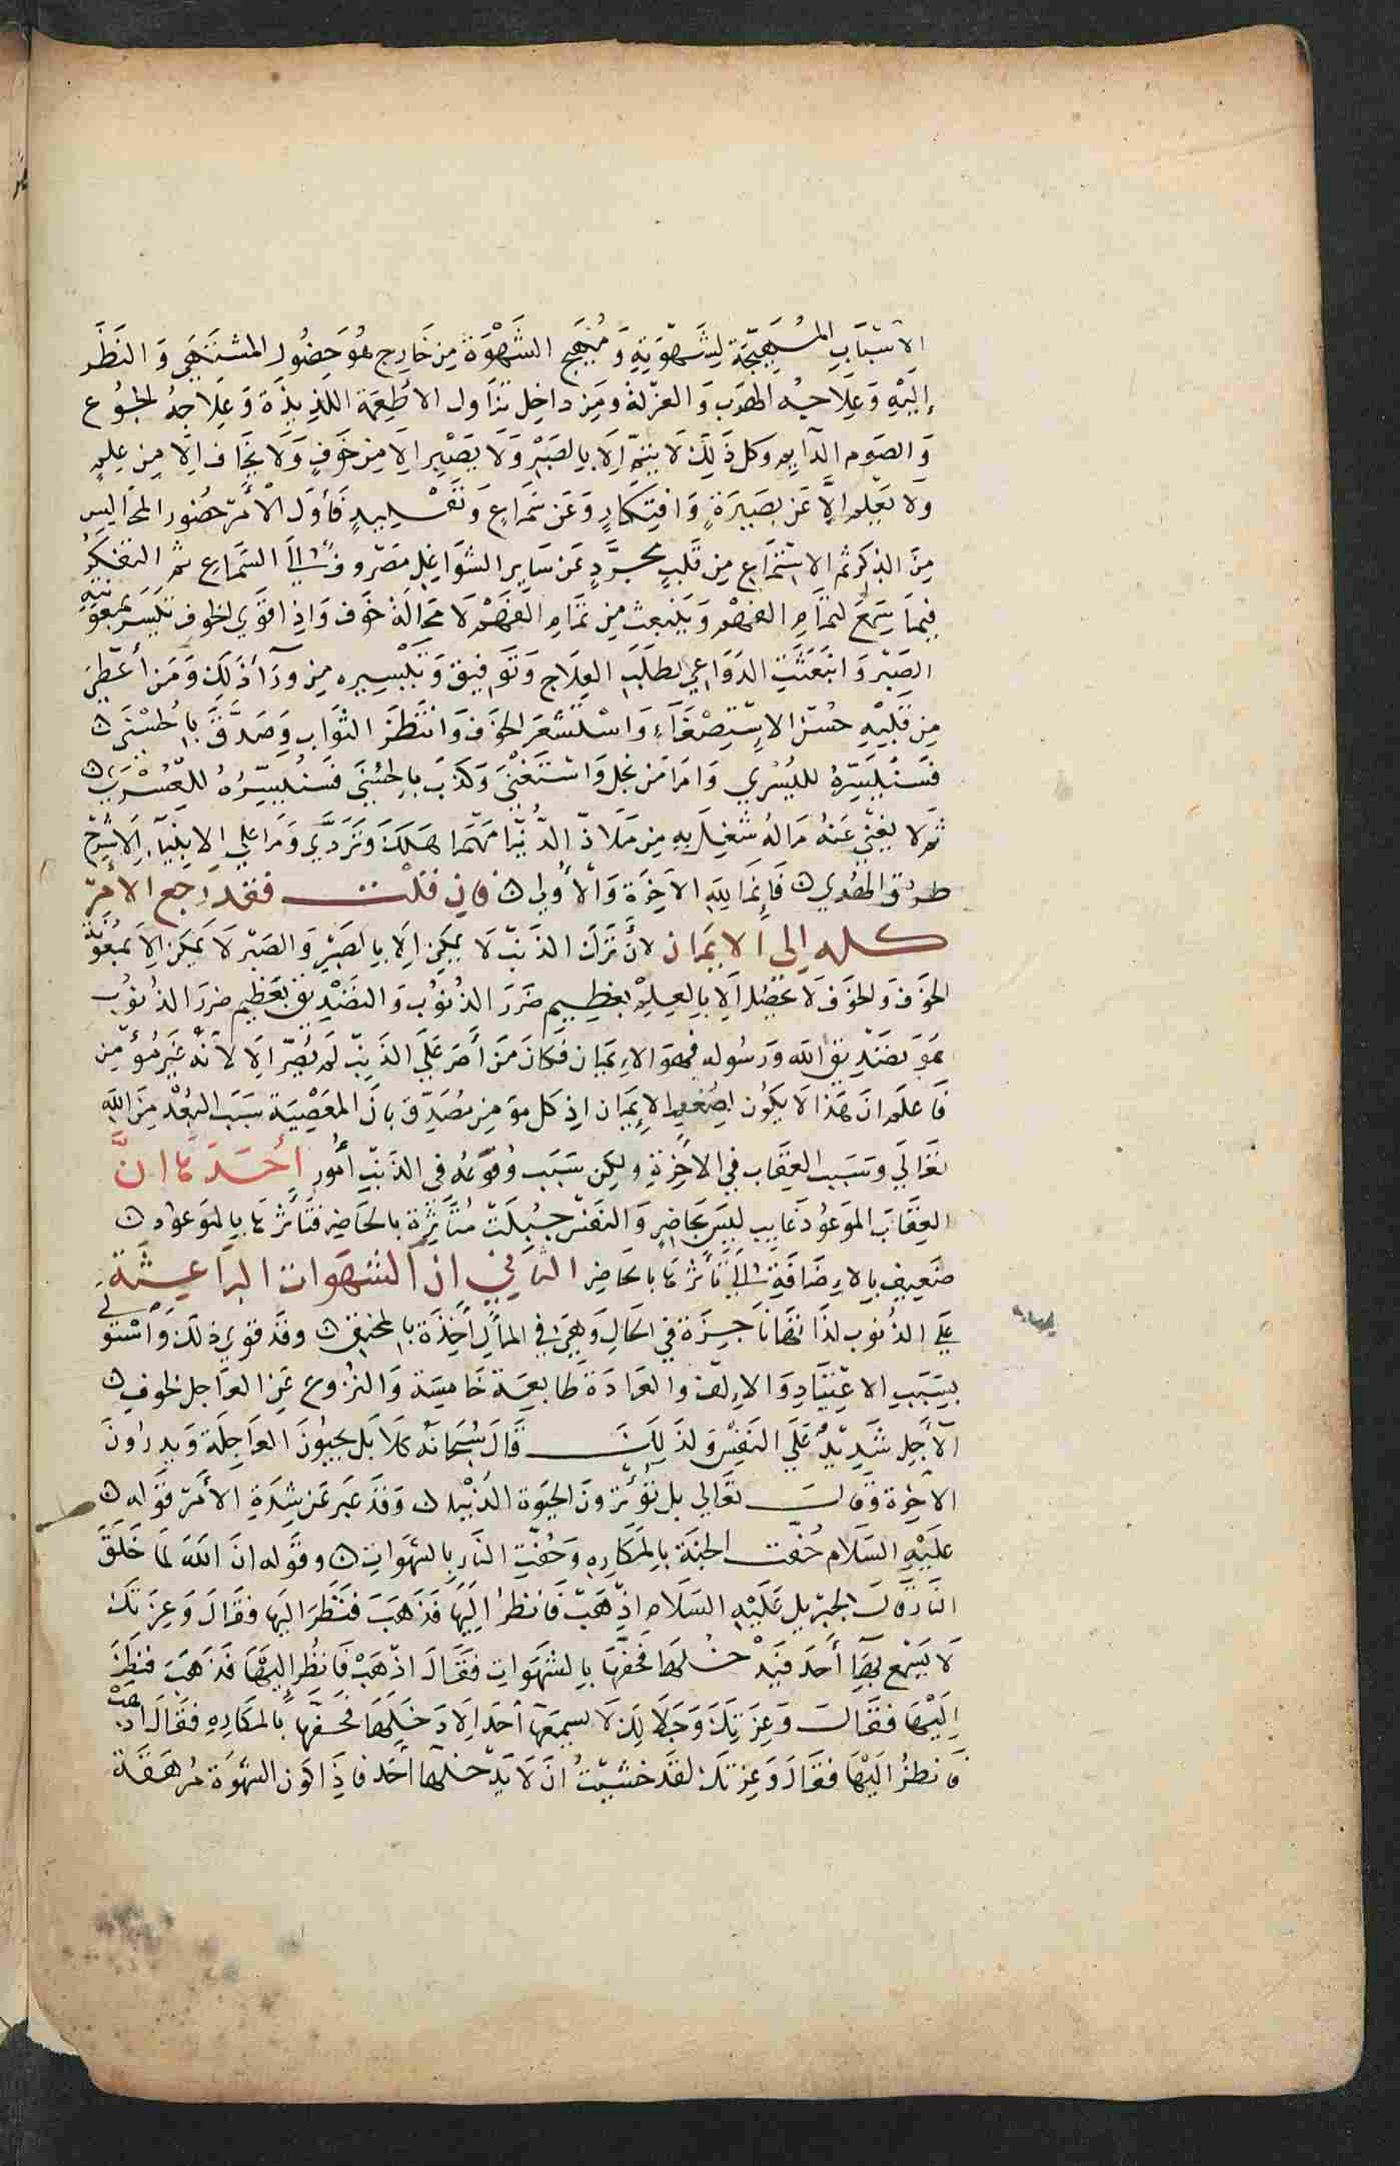 الاسباب المهيجة لشهوته ومهيج الشهوة من خارج هو حضور المشتهى والنظر
إليه وعلاجه الهرب والعزلة ومن داخل تناول الأطعمة اللذيذة وعلاجه الجوع
والصوم الدايم وكل ذلك لا يتم إلا بالصبر ولا يصبر إلا من خوف ولا يخاف الا من علم
ولا يعلم إلا عن بصيرة وافتكار وعن سماع وتقليد فأول الأمر حضور المجالس
من الذكر ثم الاستماع من قلب مجرد عن ساير الشواغل مصروف إلى السماع ثم التفكر
فيما يسمع لتمام الفهم وينبعث من تمام الفهم لا محالة خوف واذا قوي الخوف تيسر بمعونته
الصبر وانبعثت الدواعي لطلب العلاج وتوفيق وتيسيره من ورآ ذلك ومن أعطي
من قلبه حسن الاستصغاء واستشعر الخوف وانتظر الثواب وصدق بالحسنى ن
فسنيسره لليسري واما من بخل واستغنى وكذب بالحسنى فسنيسره للعسرى ن
ثم لا يغني عنه ماله شغل به من ملاذ الدنيا مهما هلك وتردي وما علي الانبيآ إلا شرح
طرق الهدي ن فإنما لله الآخرة والأولى ن فان قلت فقد رجع الأمر
كله إلى الايمان لأن ترك الذنب لا يمكن إلا بالصبر والصبر لا يمكن إلا بمعونة
الخوف والخوف لا يحصل الا بالعلم بعظيم ضرر الذنوب والتصديق بعظيم ضرر الذنوب
هو تصديق الله ورسوله فهو الايمان فكان من أصر على الذنب لم يصر إلا لأنه غير مؤمن
فاعلم ان هذا لا يكون لضعف الإيمان اذ كل مومن مصدق بان المعصية سبب البعد من الله
تعالي وسبب العقاب في الآخرة ولكن سبب وقوعه في الذنب أمور أحدها انَّ
العقاب الموعود غايب ليس بحاضر والنفس جبلت متأثرة بالحاضر فتأثرها بالموعود ن
ضعيف بالإضافة إلى تأثرها بالحاضر الثاني ان الشهوات الباعثة
علي الذنوب لذاتها ناجزة في الحال وهي في المآل آخذة بالمخنق ن وقد قوي ذلك واستولى
بسبب الاعتياد والإلف والعادة طابعة خامسة والنزوع عن العاجل لخوف ن
الآجل شديد على النفس ولذلك قال سبحانه كلا بل يحبون العاجلة ويذرون
الآخرة وقال تعالي بل تؤثرون الحيوة الدنيا ن وقد عبر عن شدة الأمر قوله ن
عليه السلام حفت الجنة بالمكاره وحفت النار بالشهوات ن وقوله ان الله لما خلق
النار قال لجبريل عليه السلام اذهب فانظر إليها فذهب فنظر اليها فقال وعزتك
لا يسمع بها أحد فيدخلها فحفها بالشهوات فقال اذهب فانظر إليها فذهب فنظر
إليها فقال وعزتك وجلالك لا يسمعها أحد إلا دخلها فحفها بالمكاره فقال اذهب
فانظر اليها فقال وعزتك لقد خشيت ان لا يدخلها أحد فاذا كون الشهوة مرهقة